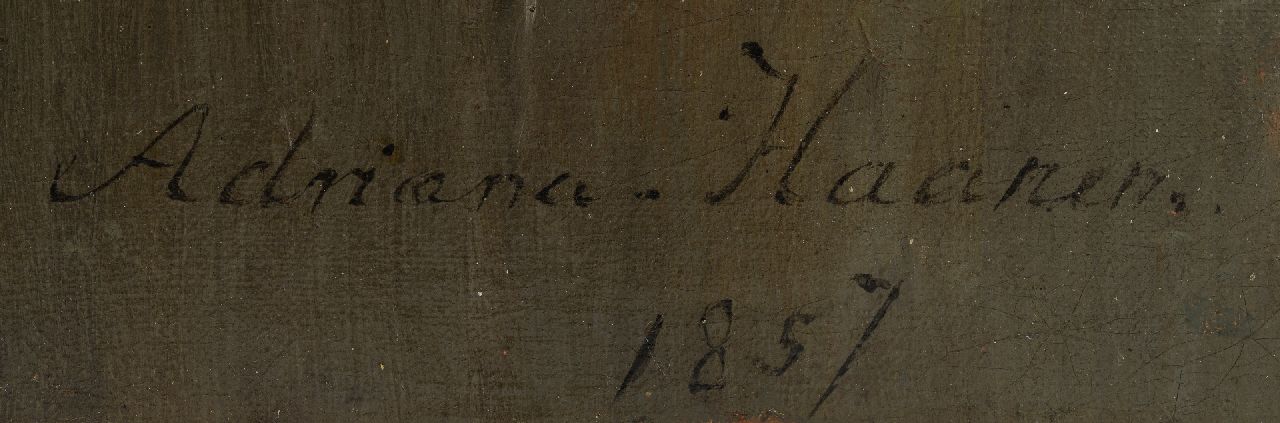 Adriana - Haanen.
1857